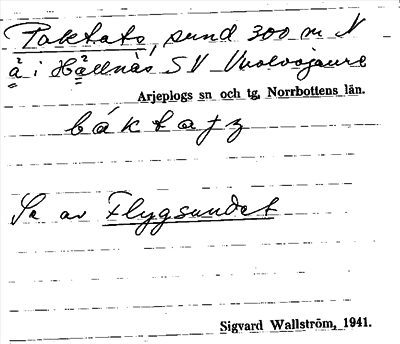 Paktats, sund 300 m N
å i Hällnäs SV Vuolvojaure
Arjeplogs sn och tg, Norrbottens län.
báktajz
Se av Flygsundet
Sigvard Wallström, 1941.